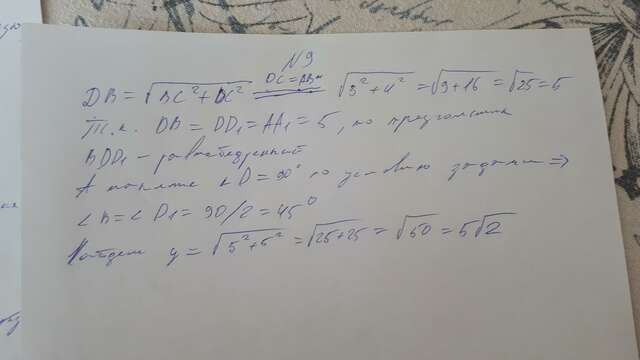 №9
DB = √BC²+DC² DC=AB √3²+4² = √9+16 = √25 = 5
Т.к. DB = DD₁ = AA₁ = 5, то треугольник
BDD₁ - равнобедренный
А также ∠D = 90° по условию задачи ⇒
∠B = ∠D₁ = 90/2 = 45°
Найдем y = √5²+5² = √25+25 = √50 = 5√2